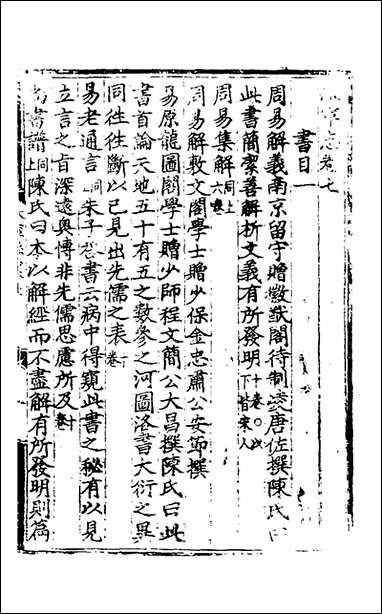 志卷七
書目一
周易解義南京留守贈徽猷閣待制凌唐佐撰陳氏曰
此書簡潔善解析文義有所發明十卷○以下皆宋人
周易集解同上六卷
周易解敷文閣學士贈少保金忠肅公安節撰
易原龍圖閣學士贈少師程文簡公大昌撰陳氏曰此
書首論天地五十有五之數參之河圖洛書大衍之異
同往往斷以己見出先儒之表十卷
易老通言同上朱子答書云病中得窺此書之秘有以見
立言之旨深遠奧博非先儒思慮所及十卷
書譜同上陳氏曰本以解經而不盡解有所發明則篇